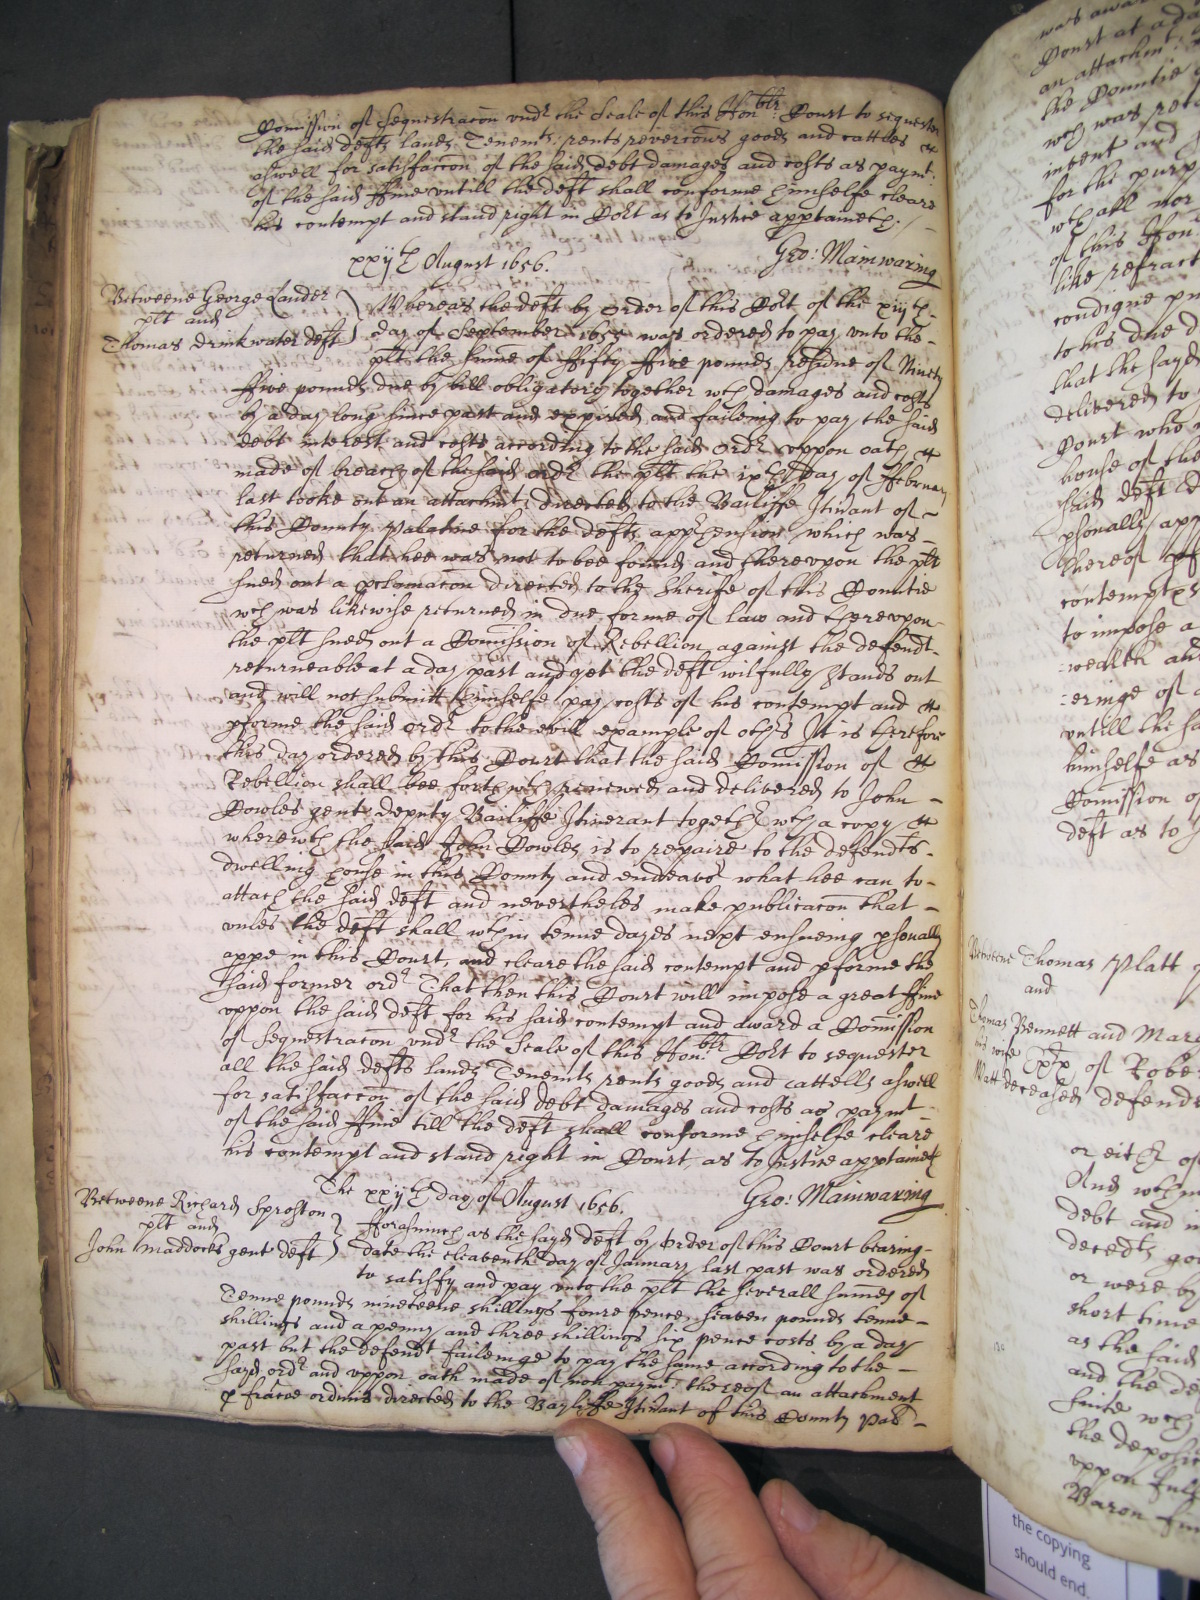 Comission of Sequestracon vndr the Seale of this Honble: Court to sequester
the said defts lands Tenemts: rents revercons goods and cattles &
aswell for satisfaccon of the said debt damages and costs as paymt:
of the said ffine vntill the deft shall conforme himselfe cleare
his contempt and stand right in Cort as to Justice apptaineth./
Geo: Mainwaring
xxijth August 1656.
Betweene George Lander
plt and
Thomas Drinkwater deft
Whereas the deft by order of this Cort of the xiijth
day of September 1655 was ordered to pay vnto the
plt the sume of ffifty ffive pounds residue of Ninety
ffive pounds due by bill obligatory together wth damages and costs
by a day long since past and expired and faileing to pay the said
debt interest and costs according to the said Ordr vppon oath
made of breach of the said ordr the plt the ixth day of ffebruary
last tooke out an attachmt: directed to the Bailiffe Itinant of
this County Palatine for the defts apphension which was
returned that hee was not to bee found and therevpon the plt
sued out a pclamacon directed to the Sheriffe of this Countie
wch was likewise returned in due forme of law and therevpon
the plt sued out a Comission of Rebellion against the defendt
returneable at a day past and yet the deft wilfully stands out
and will not submitt himselfe pay costs of his contempt and
pforme the said ordr to the evill example of othrs It is therefore
this day ordered by this Court that the said Comission of
Rebellion shall bee forthwth renewed and delivered to John
Cowles gent deputy Bailiffe Itinerant togethr wth a copy
wherewth the said John Cowles is to repaire to the defendts
dwelling house in this County and endeavor what hee can to
attach the said deft and nevertheles make publicacon that
vnles the deft shall wthin tenne dayes next ensueing psonally
appe in this Court, and cleare the said contempt and pforme the
said former ordr That then this Court will impose a great ffine
vppon the said deft for his said contempt and award a Comission
of Sequestracon vndr the Seale of this Honble: Cort to sequester
all the said defts lands Tenemts rents goods and cattells aswell
for satisfaccon of the said debt damages and costs as paymt
of the said ffine till the deft shall conforme himselfe cleare
his contempt and stand right in Court, as to Justice apptaineth
Geo: Mainwaring
The xxijth day of August 1656.
Betweene Richard Sproston
plt and
John Maddockes gent deft
fforasmuch as the sayd deft by order of this Court bearing
date the eleaventh day of January last past was ordered
to satisfy and pay vnto the plt the severall sumes of
Tenne pounds nineteene shillings foure pence, seaven pounds tenne
shillings and a penny and three shillings six pence costs by a day
past but the defendt faileinge to pay the same according to the
sayd ordr and vppon oath made of non paymt: thereof an attachment
p fracco ordinis directed to the Bayliffe Itinant of this County Pal
Court at a da
an attachmt
the Countie
wch was ret
intent and
for the purp
wch all nor
of this Hon
like refract
condigne pu
to his due d
that the sayd
delivered to
Court who
house of the
said deft
psonally app
thereof
contempt
to impose a
wealth and
eringe of
vntill the sa
himselfe as
Comission of
deft as to J
Betweene Thomas Platt
and
Thomas Bennett and Mar
his wife Exx of Rober
Platt deceased defend
or eithr of
And wth
debt and in
decedts goo
or were by
short time
as the said
and the de
suite wch
the deposic
vppon full
Baron
the copying
should end.